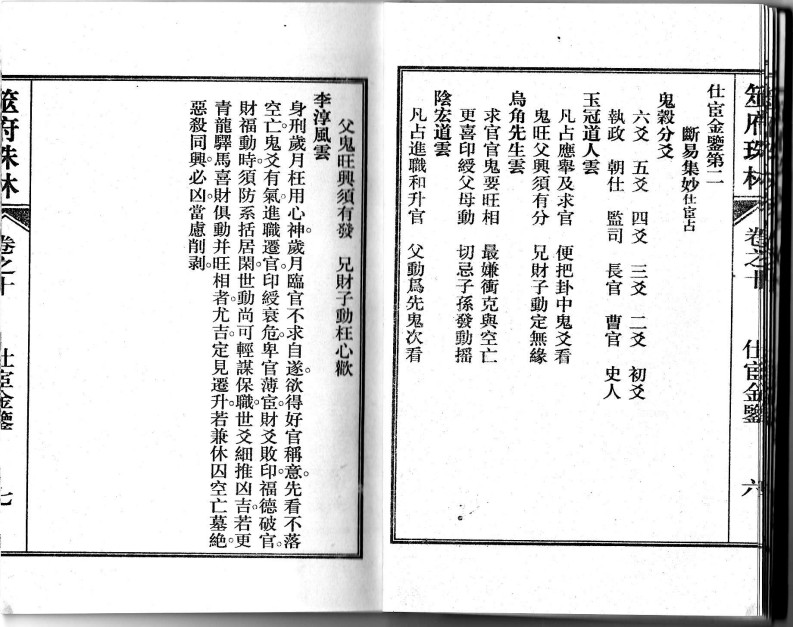 筮府珠林 卷之十 仕宦金鑒 六
仕宦金鑒第二
斷易集妙仕宦占
鬼穀分爻
六爻 五爻 四爻 三爻 二爻 初爻
執政 朝仕 監司 長官 曹官 史人
玉冠道人雲
凡占應舉及求官 便把卦中鬼爻看
鬼旺父興須有分 兄財子動定無緣
烏角先生雲
求官官鬼要旺相 最嫌衝克與空亡
更喜印綬父母動 切忌子孫發動搖
陰宏道雲
凡占進職和升官 父動爲先鬼次看
父鬼旺興須有發 兄財子動枉心歡
李淳風雲
身刑歲月枉用心神。歲月臨官不求自遂。欲得好官稱意。先看不落
空亡。鬼爻有氣進職遷官。印綬衰危。卑官薄宦。財爻敗印。福德破官。
財福動時。須防系括居閑。世動尚可輕謀保職。世爻細推凶吉。若更
青龍驛馬喜財俱動并旺相者。尤吉。定見遷升。若兼休囚空亡墓絶。
惡殺同興。必凶。當慮削剥。
筮府珠林 卷之十 仕宦金鑒 七